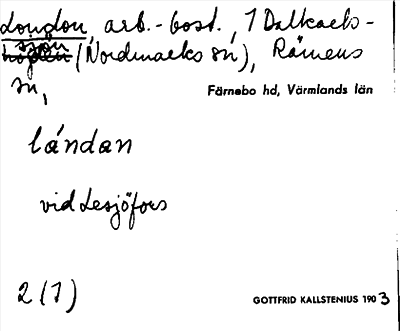 London, arb.-bost., 1 Dalkarls-
sjön
(Nordmarks sn), Rämens
sn,
Färnebo hd, Värmlands län
lándan
vid Lesjöfors
2 (1)
GOTTFRID KALLSTENIUS 1903